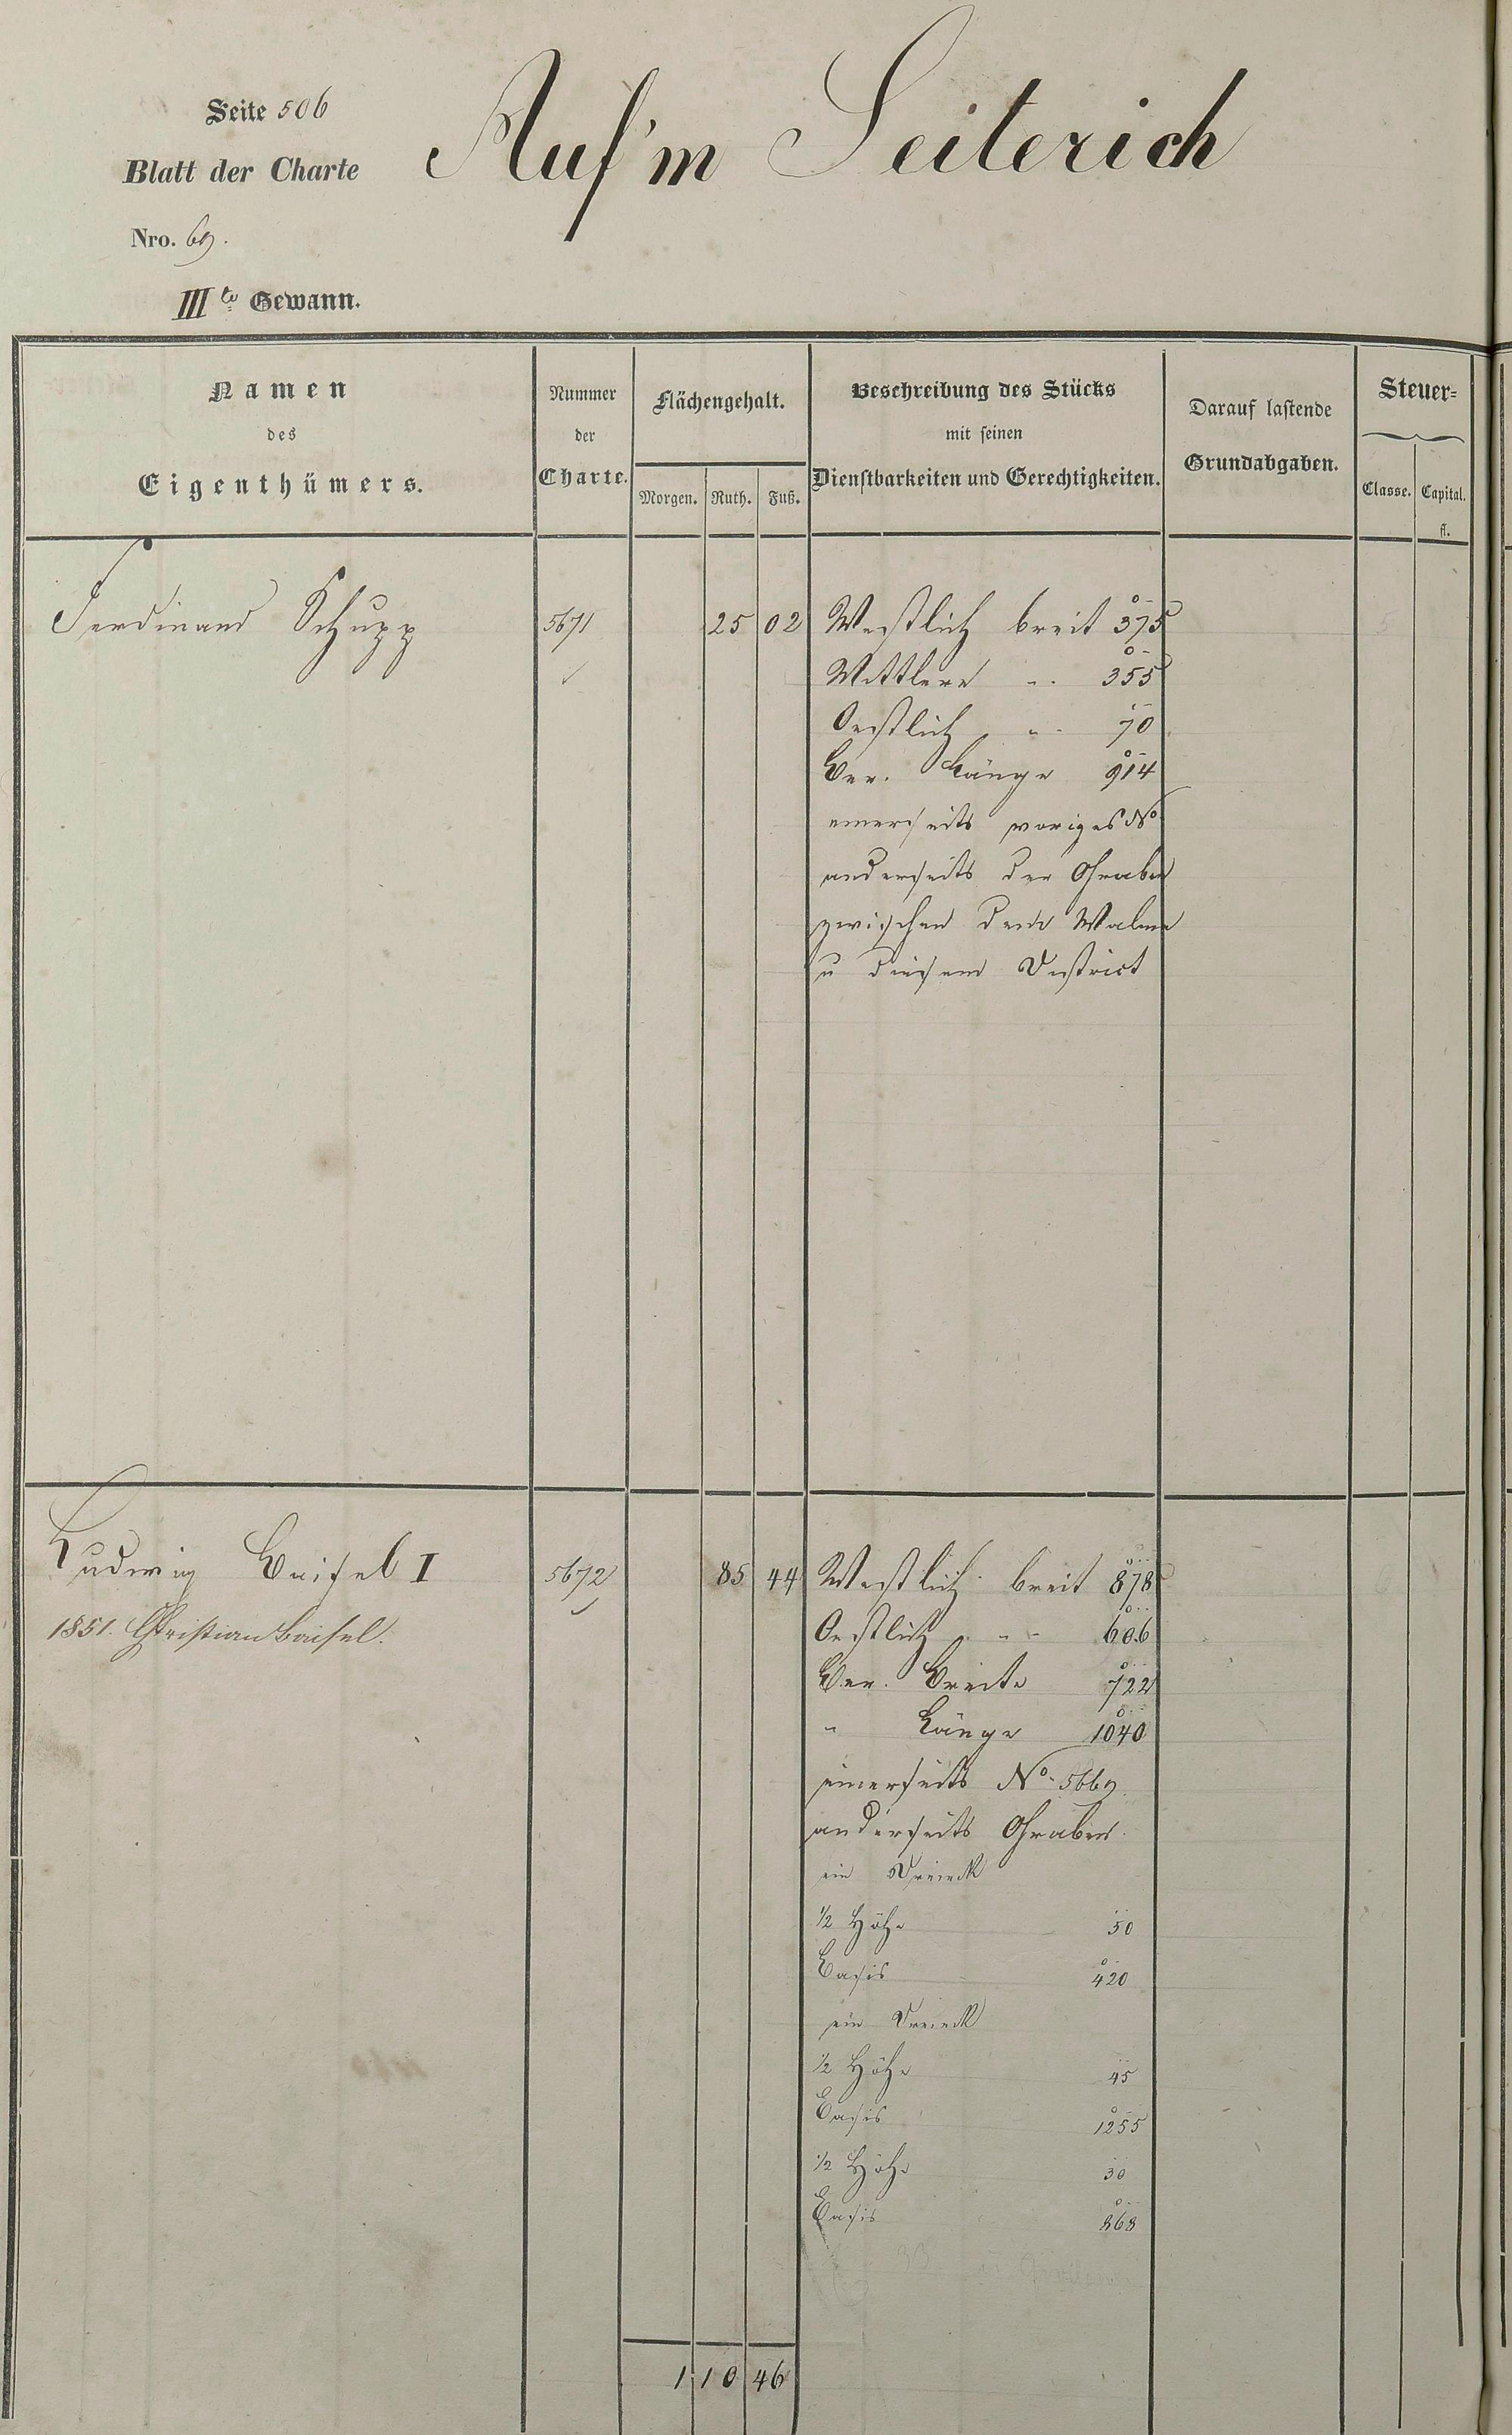 Seite 506
Auf'm Seiterich
Blatt der Charte
Nro. 69.
IIIte Gewann.
Namen des Eigenthümers.
Nummer der Charte.
Flächengehalt.
Morgen. Ruth. Fuß.
Beschreibung des Stücks mit seinen Dienstbarkeiten und Gerechtigkeiten.
Darauf lastende Grundabgaben.
Steuer=
Classe. Capital.
fl.
Ferdinand Schupp 5671 25 02 Westlich breit 375
Mittlere " 355
Oestlich " 70
Ber. Länge 914
einerseits voriges No
anderseits der Graben
zwischen dem
u diesem District
Ludwig Beisel I 5672 85 44 Westlich breit 878
1851. Christian Beisel.
Oestlich " 606
Ber. Breite 722
" Länge 1040
einerseits No 5669.
anderseits Graben.
ein Dreieck
1/2 Höhe 50
Basis 420
ein Dreieck
1/2 Höhe 45
Basis 1255
1/2 Höhe 30
Basis 868
1 10 46